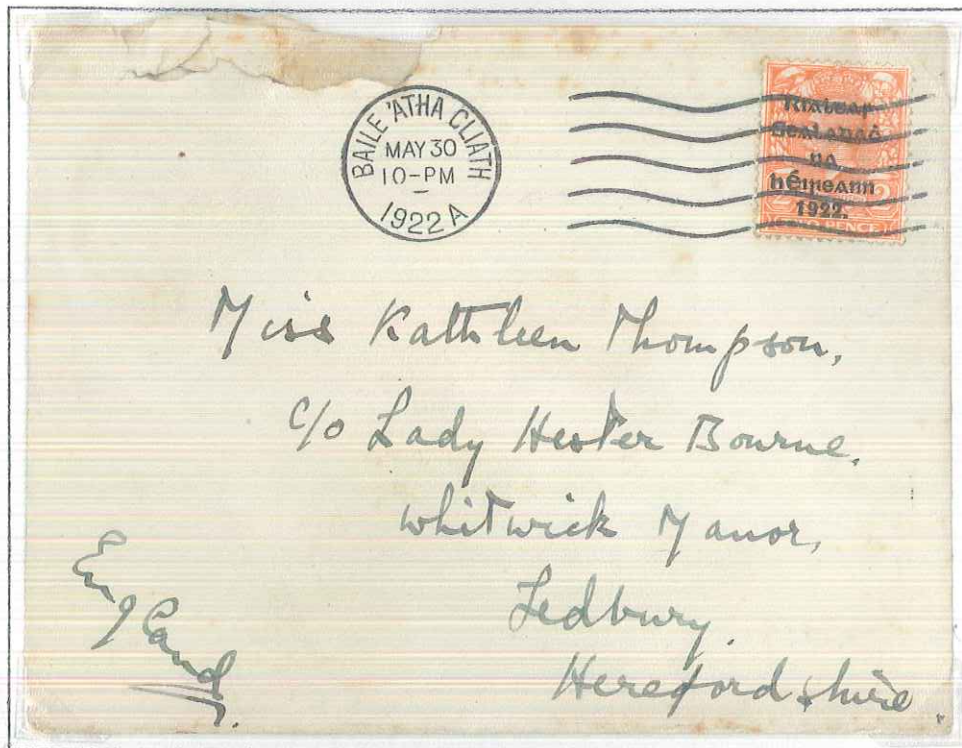 BAILE 'ATHA CLIATH
MAY 30
10-PM
1922 A
Rialtas
Sealadać
na
hÉireann
1922.
TWO PENCE
Miss Kathleen Thompson,
c/o Lady Hester Bourne,
Whitwick Manor,
Ledbury,
Herefordshire.
England.